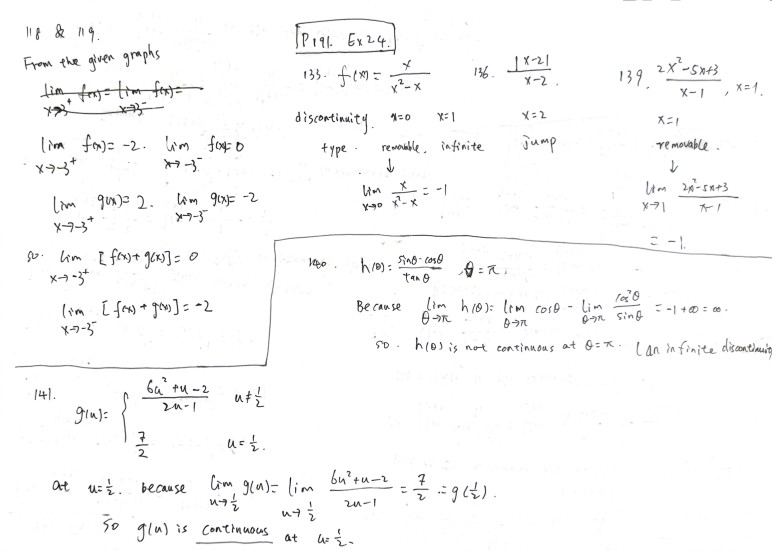 118 & 119.
From the given graphs
lim x→-3⁺ f(x) = -2. lim x→-3⁻ f(x)=0
lim x→-3⁺ g(x) = 2. lim x→-3⁻ g(x) = -2
so. lim x→-3⁺ [f(x)+g(x)] = 0
lim x→-3⁻ [f(x)+g(x)] = -2
P191. Ex 2.4.
133. f(x) = x/(x²-x)
discontinuity. x=0 x=1
type. removable. infinite
↓
lim x→0 x/(x²-x) = -1
136. |x-2|/(x-2).
x=2
jump
139. (2x²-5x+3)/(x-1), x=1.
x=1
removable.
↓
lim x→1 (2x²-5x+3)/(x-1)
= -1.
140. h(θ) = (sinθ-cosθ)/tanθ, θ=π.
Because lim θ→π h(θ) = lim θ→π cosθ - lim θ→π cos²θ/sinθ = -1+∞ = ∞.
so. h(θ) is not continuous at θ=π. (an infinite discontinuity
141. g(u) = { (6u²+u-2)/(2u-1) u≠1/2
7/2 u=1/2.
at u=1/2. because lim u→1/2 g(u) = lim u→1/2 (6u²+u-2)/(2u-1) = 7/2 = g(1/2).
So g(u) is continuous at u=1/2.